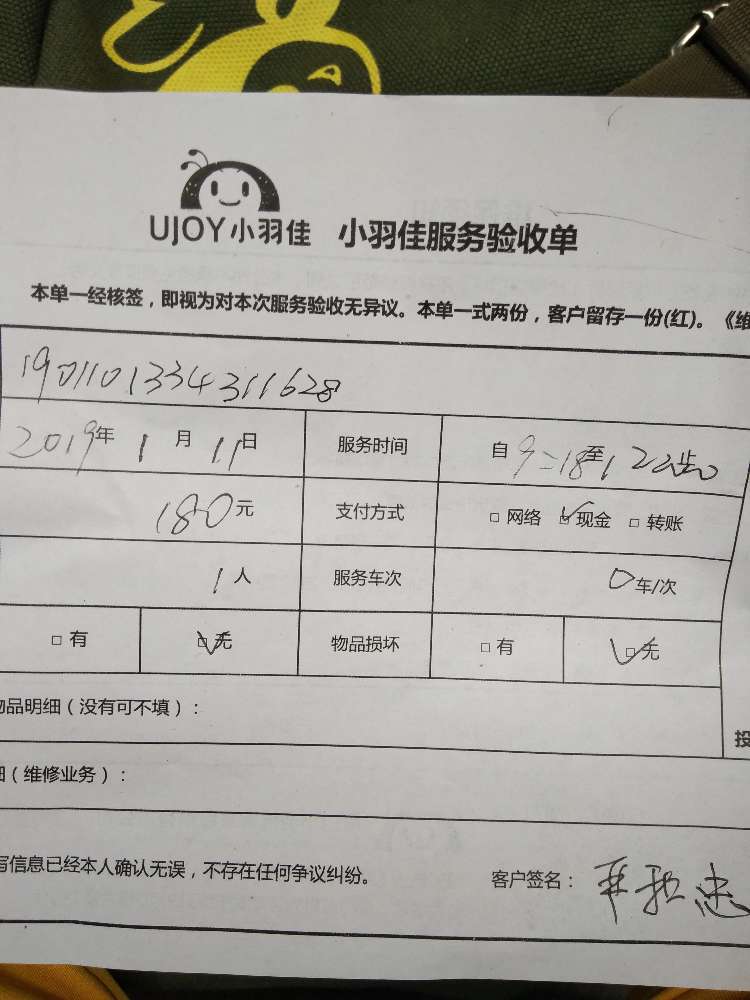 UJOY小羽佳 小羽佳服务验收单
本单一经核签，即视为对本次服务验收无异议。本单一式两份，客户留存一份(红)。《维
1901101334311628
2019年 1月 11日 服务时间 自9:18至
180元 支付方式 □ 网络 ☑ 现金 □ 转账
1人 服务车次 0车/次
□ 有 ☑ 无 物品损坏 □ 有 ☑ 无
品明细（没有可不填）：
投
（维修业务）：
写信息已经本人确认无误，不存在任何争议纠纷。 客户签名：